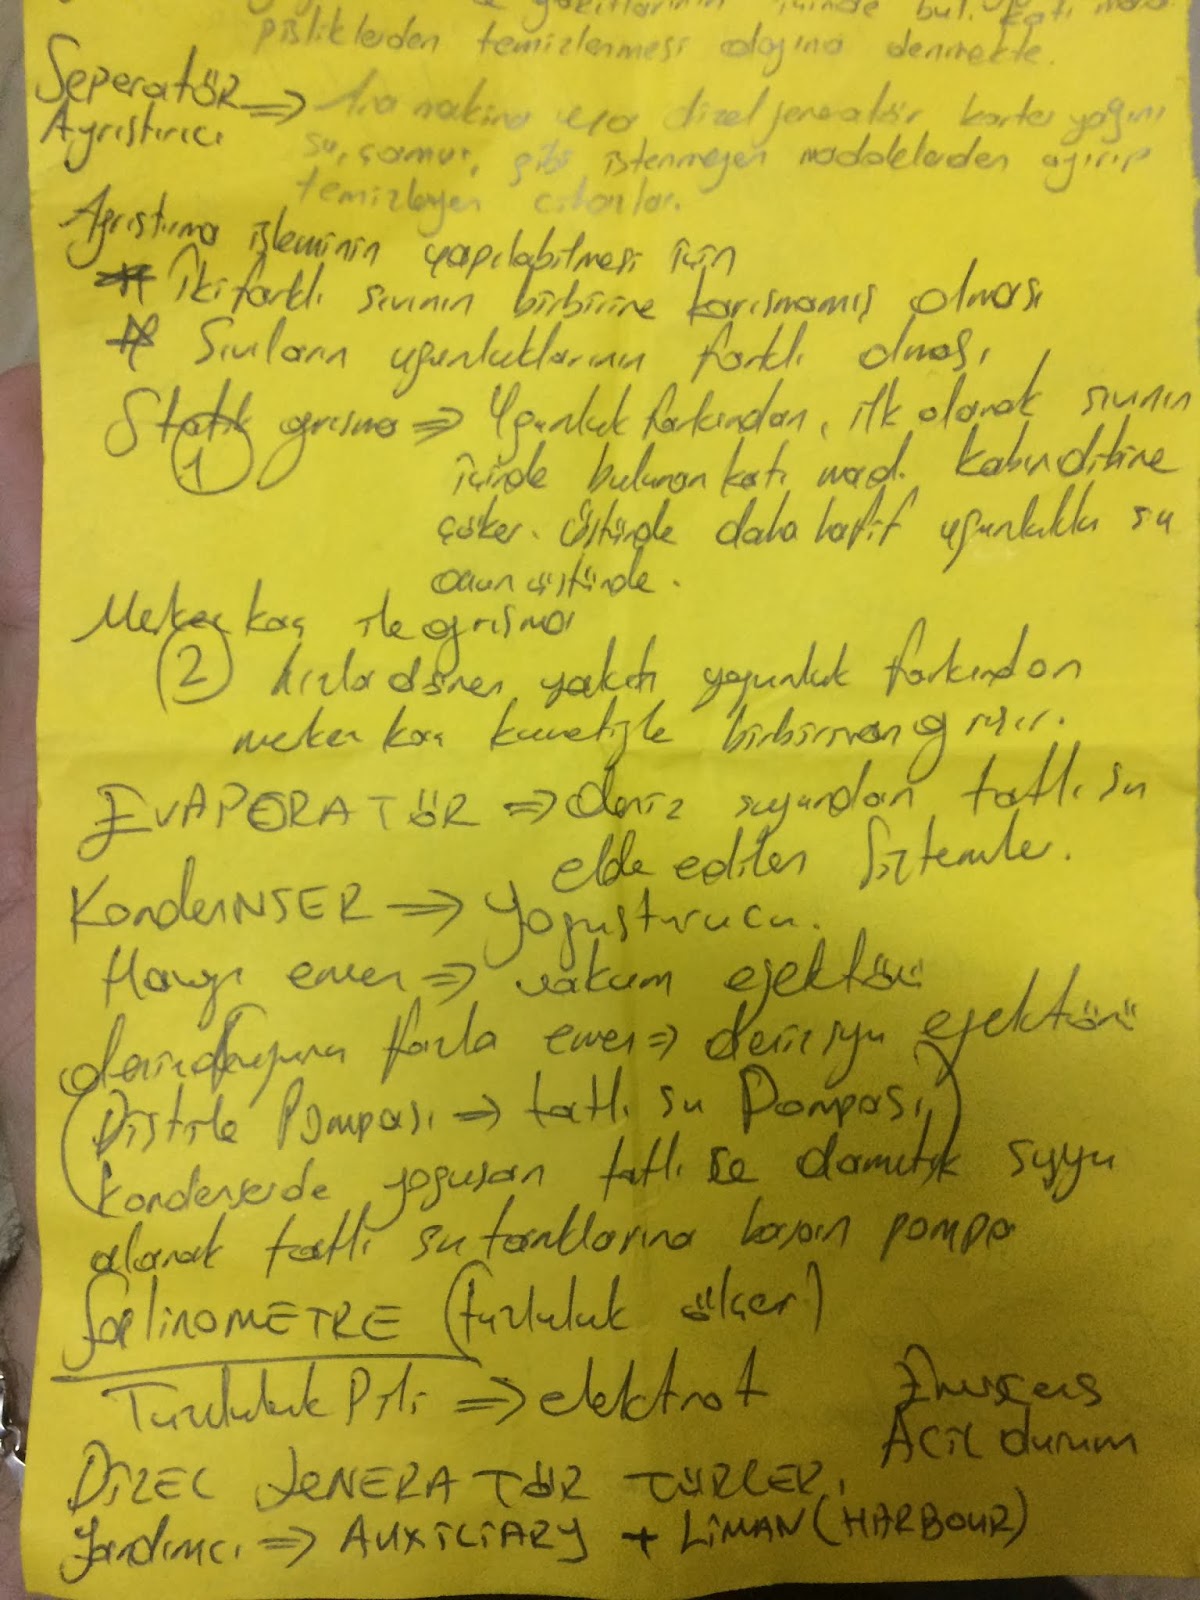 yakıtlarının içinde bul. katı mad.
pisliklerden temizlenmesi olayına denmekte.
Seperatör ⇒ Ana makina veya dizel jeneratör karter yağını
Ayrıştırıcı su, çamur, gibi istenmeyen maddelerden ayırıp
temizleyen cihazlar.
Ayrıştırma işleminin yapılabilmesi için
* İki farklı sıvının birbirine karışmamış olması
* Sıvıların yoğunluklarının farklı olması
Statik ayrışma ⇒ Yoğunluk farkından, ilk olarak sıvının
1 içinde bulunan katı mad. kabın dibine
çöker. Üstünde daha hafif yoğunluklu su
onun üstünde.
Merkez kaç ile ayrışma
2 hızla dönen yakıtı yoğunluk farkından
merkez kaç kuvvetiyle birbirinden ayrışır.
EVAPORATÖR ⇒ deniz suyundan tatlı su
elde edilen Sistemler.
KondenSER ⇒ Yoğuşturucu.
Havayı emer ⇒ vakum ejektörü
deniz suyunu fazla emer ⇒ deniz suyu ejektörü
(Distile Pompası ⇒ tatlı su Pompası)
kondenserde yoğuşan tatlı se damıtık suyu
alarak tatlı su tanklarına basan pompa
SalinoMETRE (tuzluluk ölçer)
Tuzluluk Pili ⇒ elektrot
Acil durum
DİZEL JENERATÖR TÜRLER.
Yardımcı ⇒ AUXILIARY + LİMAN (HARBOUR)